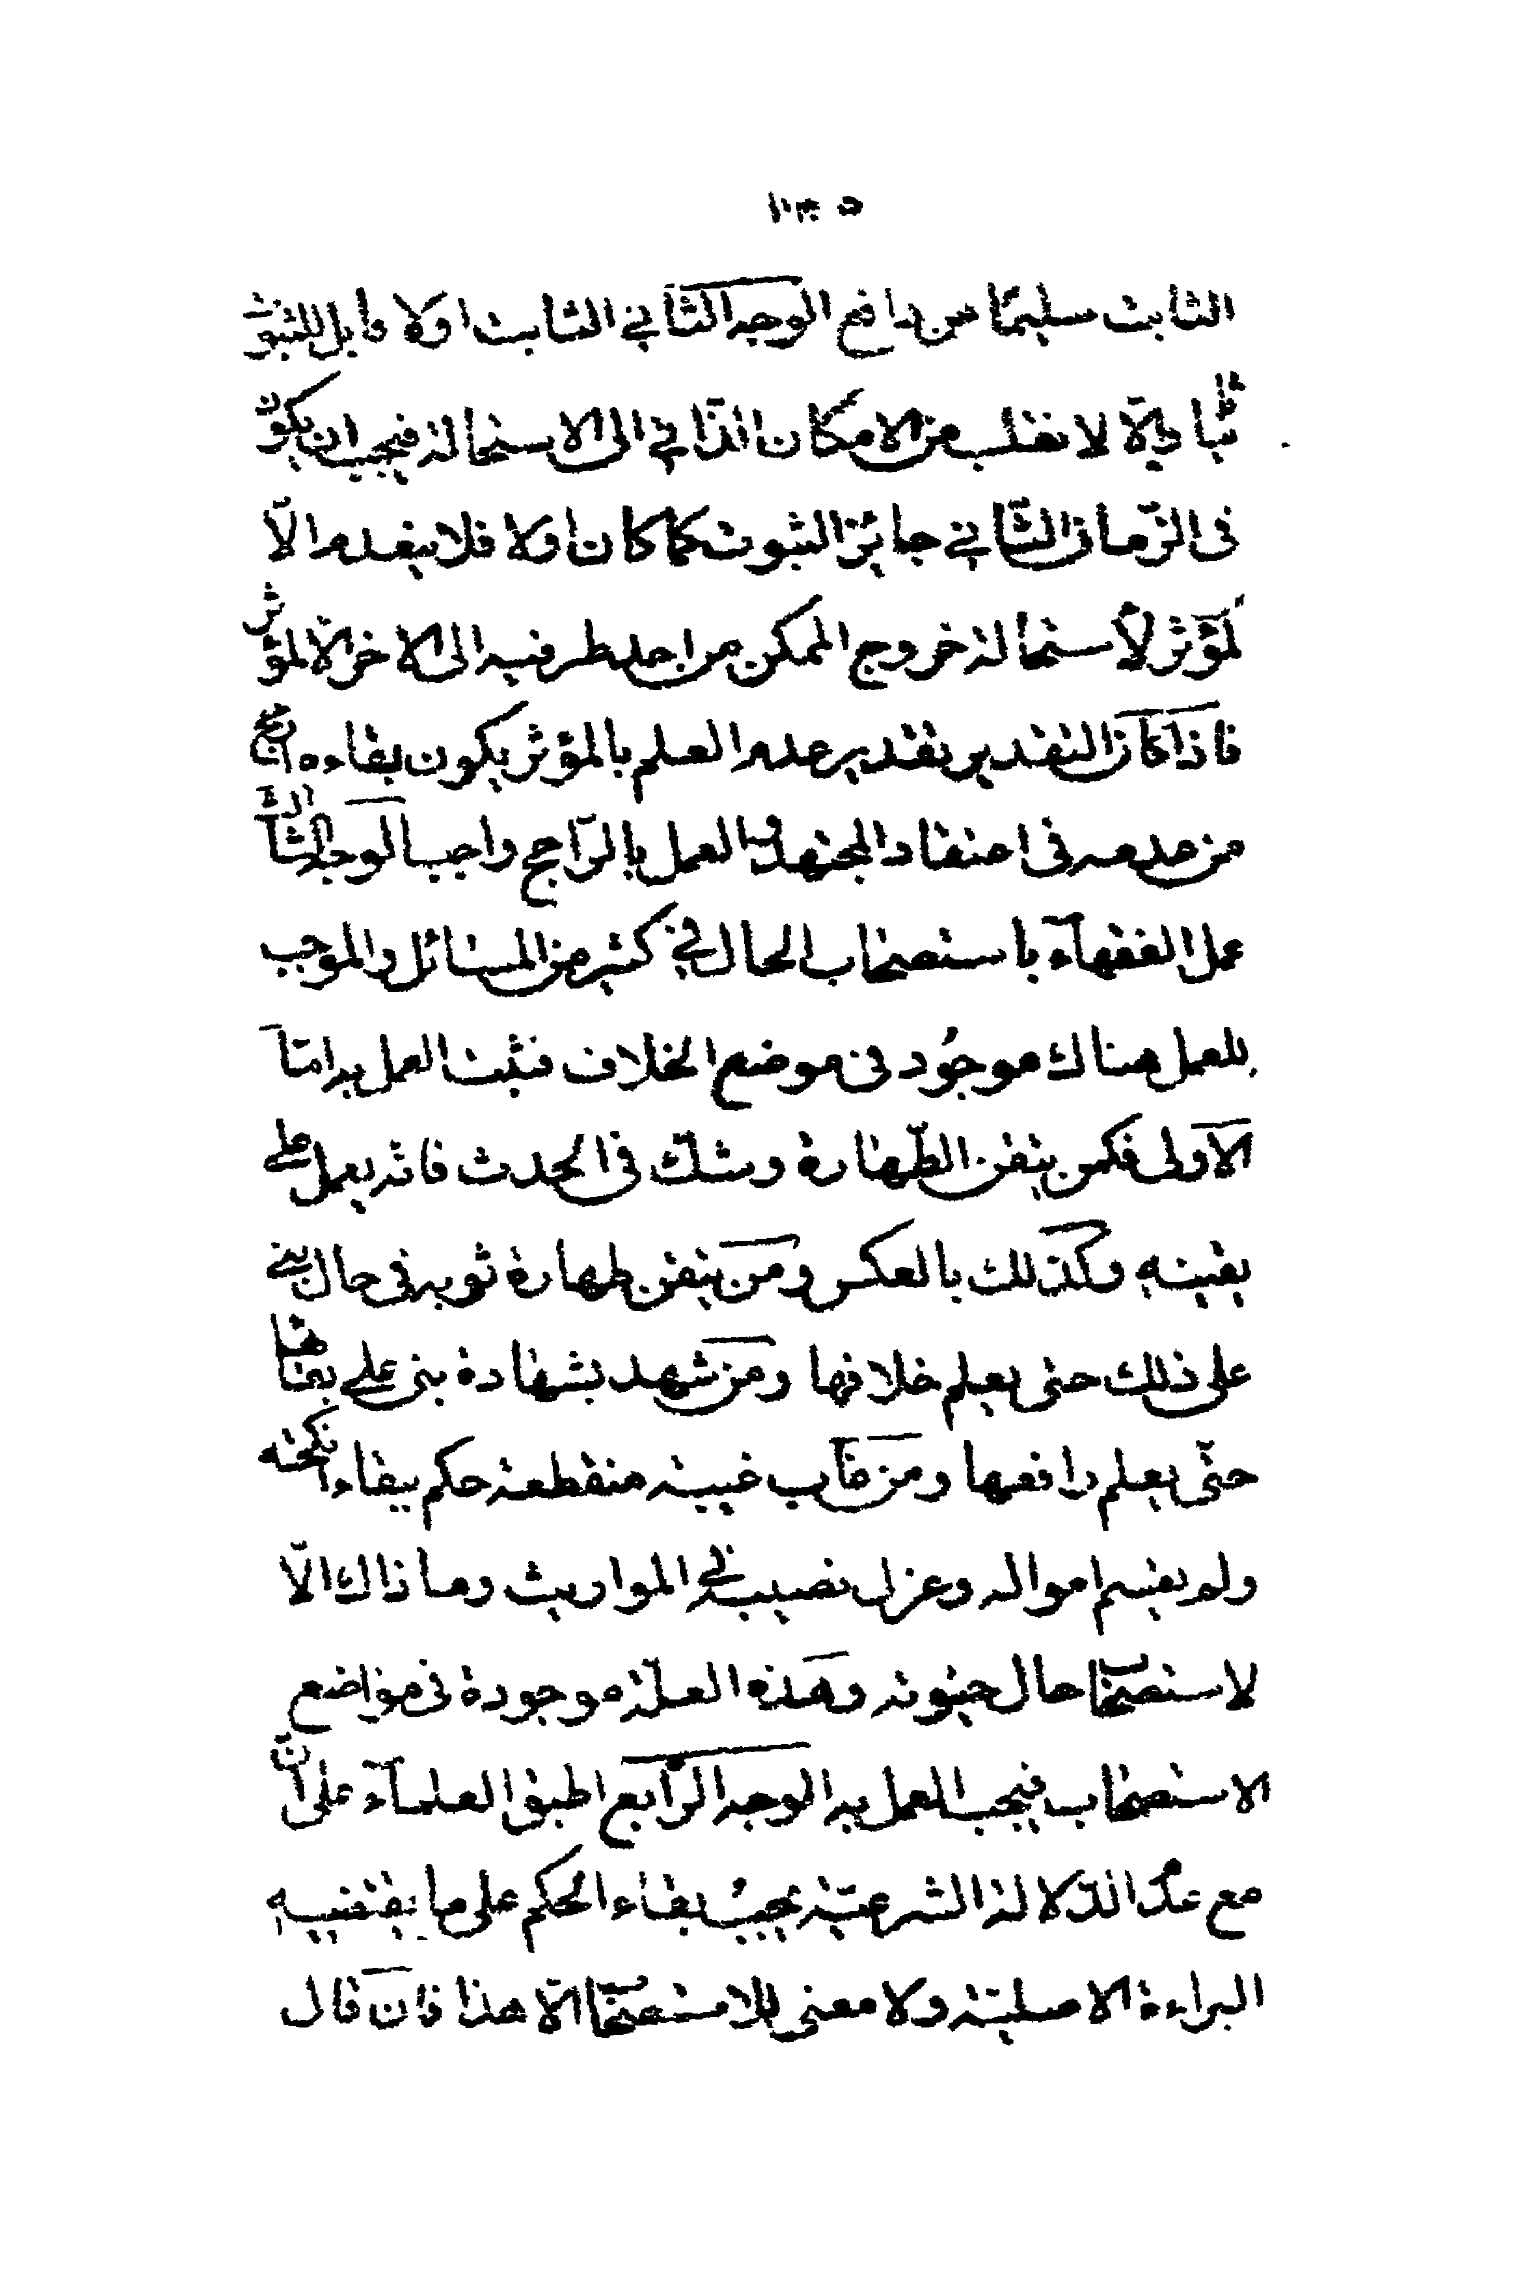 ١٣٥
الثابت سليما من دافع الوجه الثانى الثابت اولا قابل للثبوت
ثانيا والّا لانقلب من الامكان الذاتى الى الاستحالة فيجب ان يكون
فى الزّمان الثّانى جائز الثبوت كما كان اولا فلا ينعدم الّا
لمؤثر لاستحالة خروج الممكن من احد طرفيه الى الاخر الّا لمؤثر
فاذا كان التقدير تقدير عدم العلم بالمؤثر يكون بقاءه ارجح
من عدمه فى اعتقاد المجتهد والعمل بالرّاجح واجب الوجه الثالث
عمل الفقهآء باستصحاب الحال فى كثير من المسائل والموجب
للعمل هناك موجود فى موضع الخلاف فثبت العمل به امّا
الاولى فكمن يتقن الطّهارة وشكّ فى الحدث فانّه يعمل على
يقينه وكذلك بالعكس ومن يتقن طهارة ثوبه فى حال بنى
على ذلك حتى يعلم خلافها ومن شهد بشهادة بنى على بقائها
حتّى يعلم رافعها ومن غاب غيبة منقطعة حكم ببقاء انكحته
ولم يقسم امواله وعزل نصيبه فى المواريث وما ذاك الّا
لاستصحاب حال حيوته وهذه العلّة موجودة فى مواضع
الاستصحاب فيجب العمل به الوجه الرّابع اطبق العلمآء على انّ
مع عدم الدّلالة الشرعيّة يجب بقاء الحكم على ما يقتضيه
البراءة الاصليّة ولا معنى للاستصحاب الّا هذا فان قال